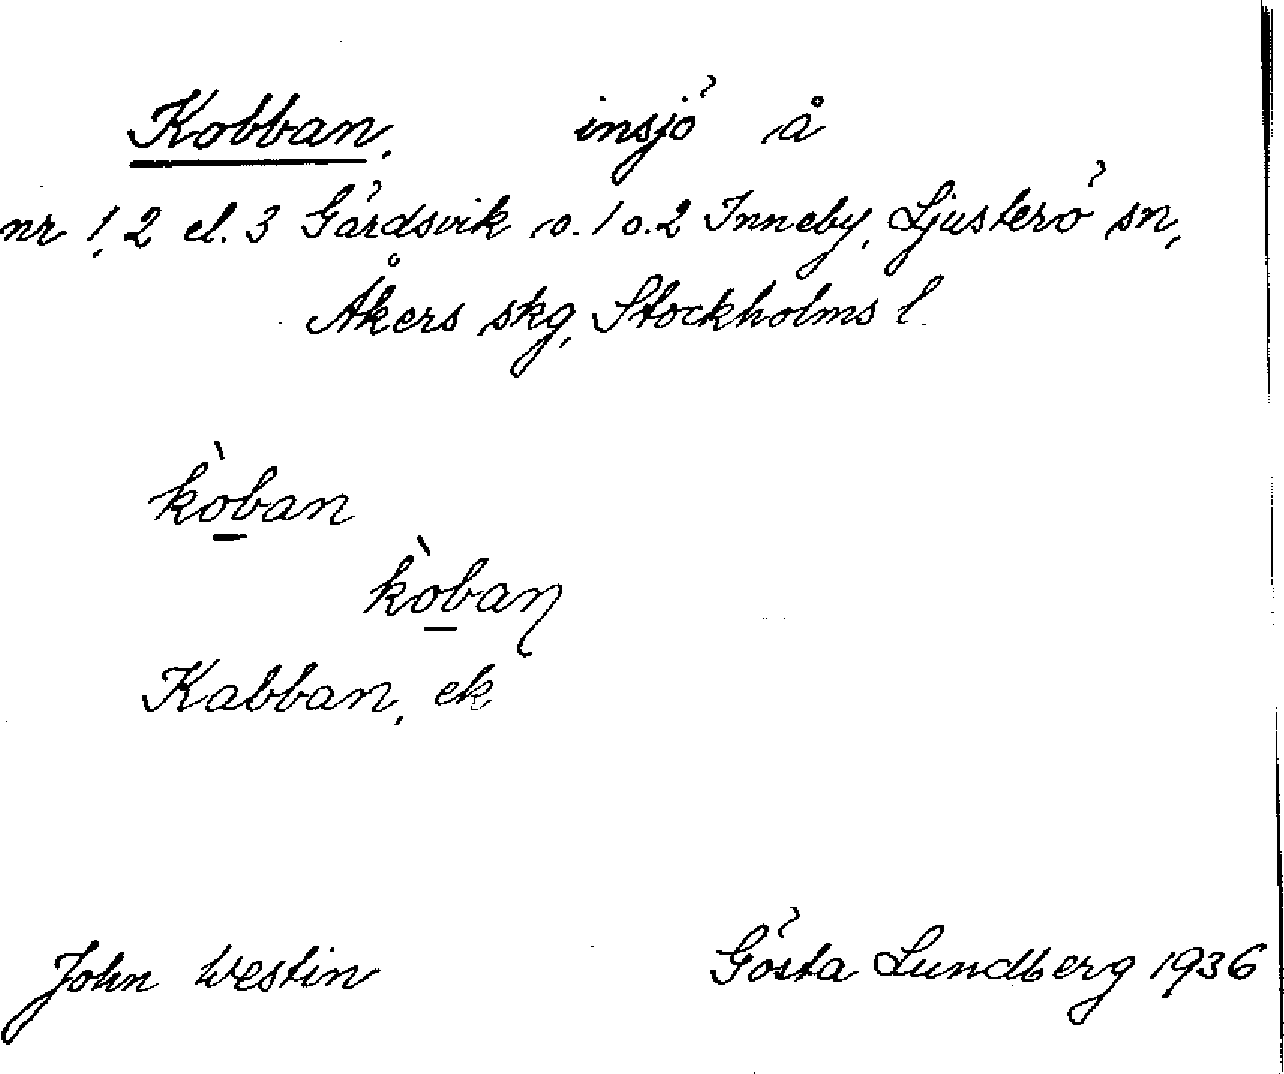 Kobban, insjö å
nr 1, 2 el. 3 Gärdsvik o. 1 o. 2 Inneby, Ljusterö sn,
Åkers skg, Stockholms l.
kò̱ban
kò̱baƞ
Kabban, ek
John Westin Gösta Lundberg 1936